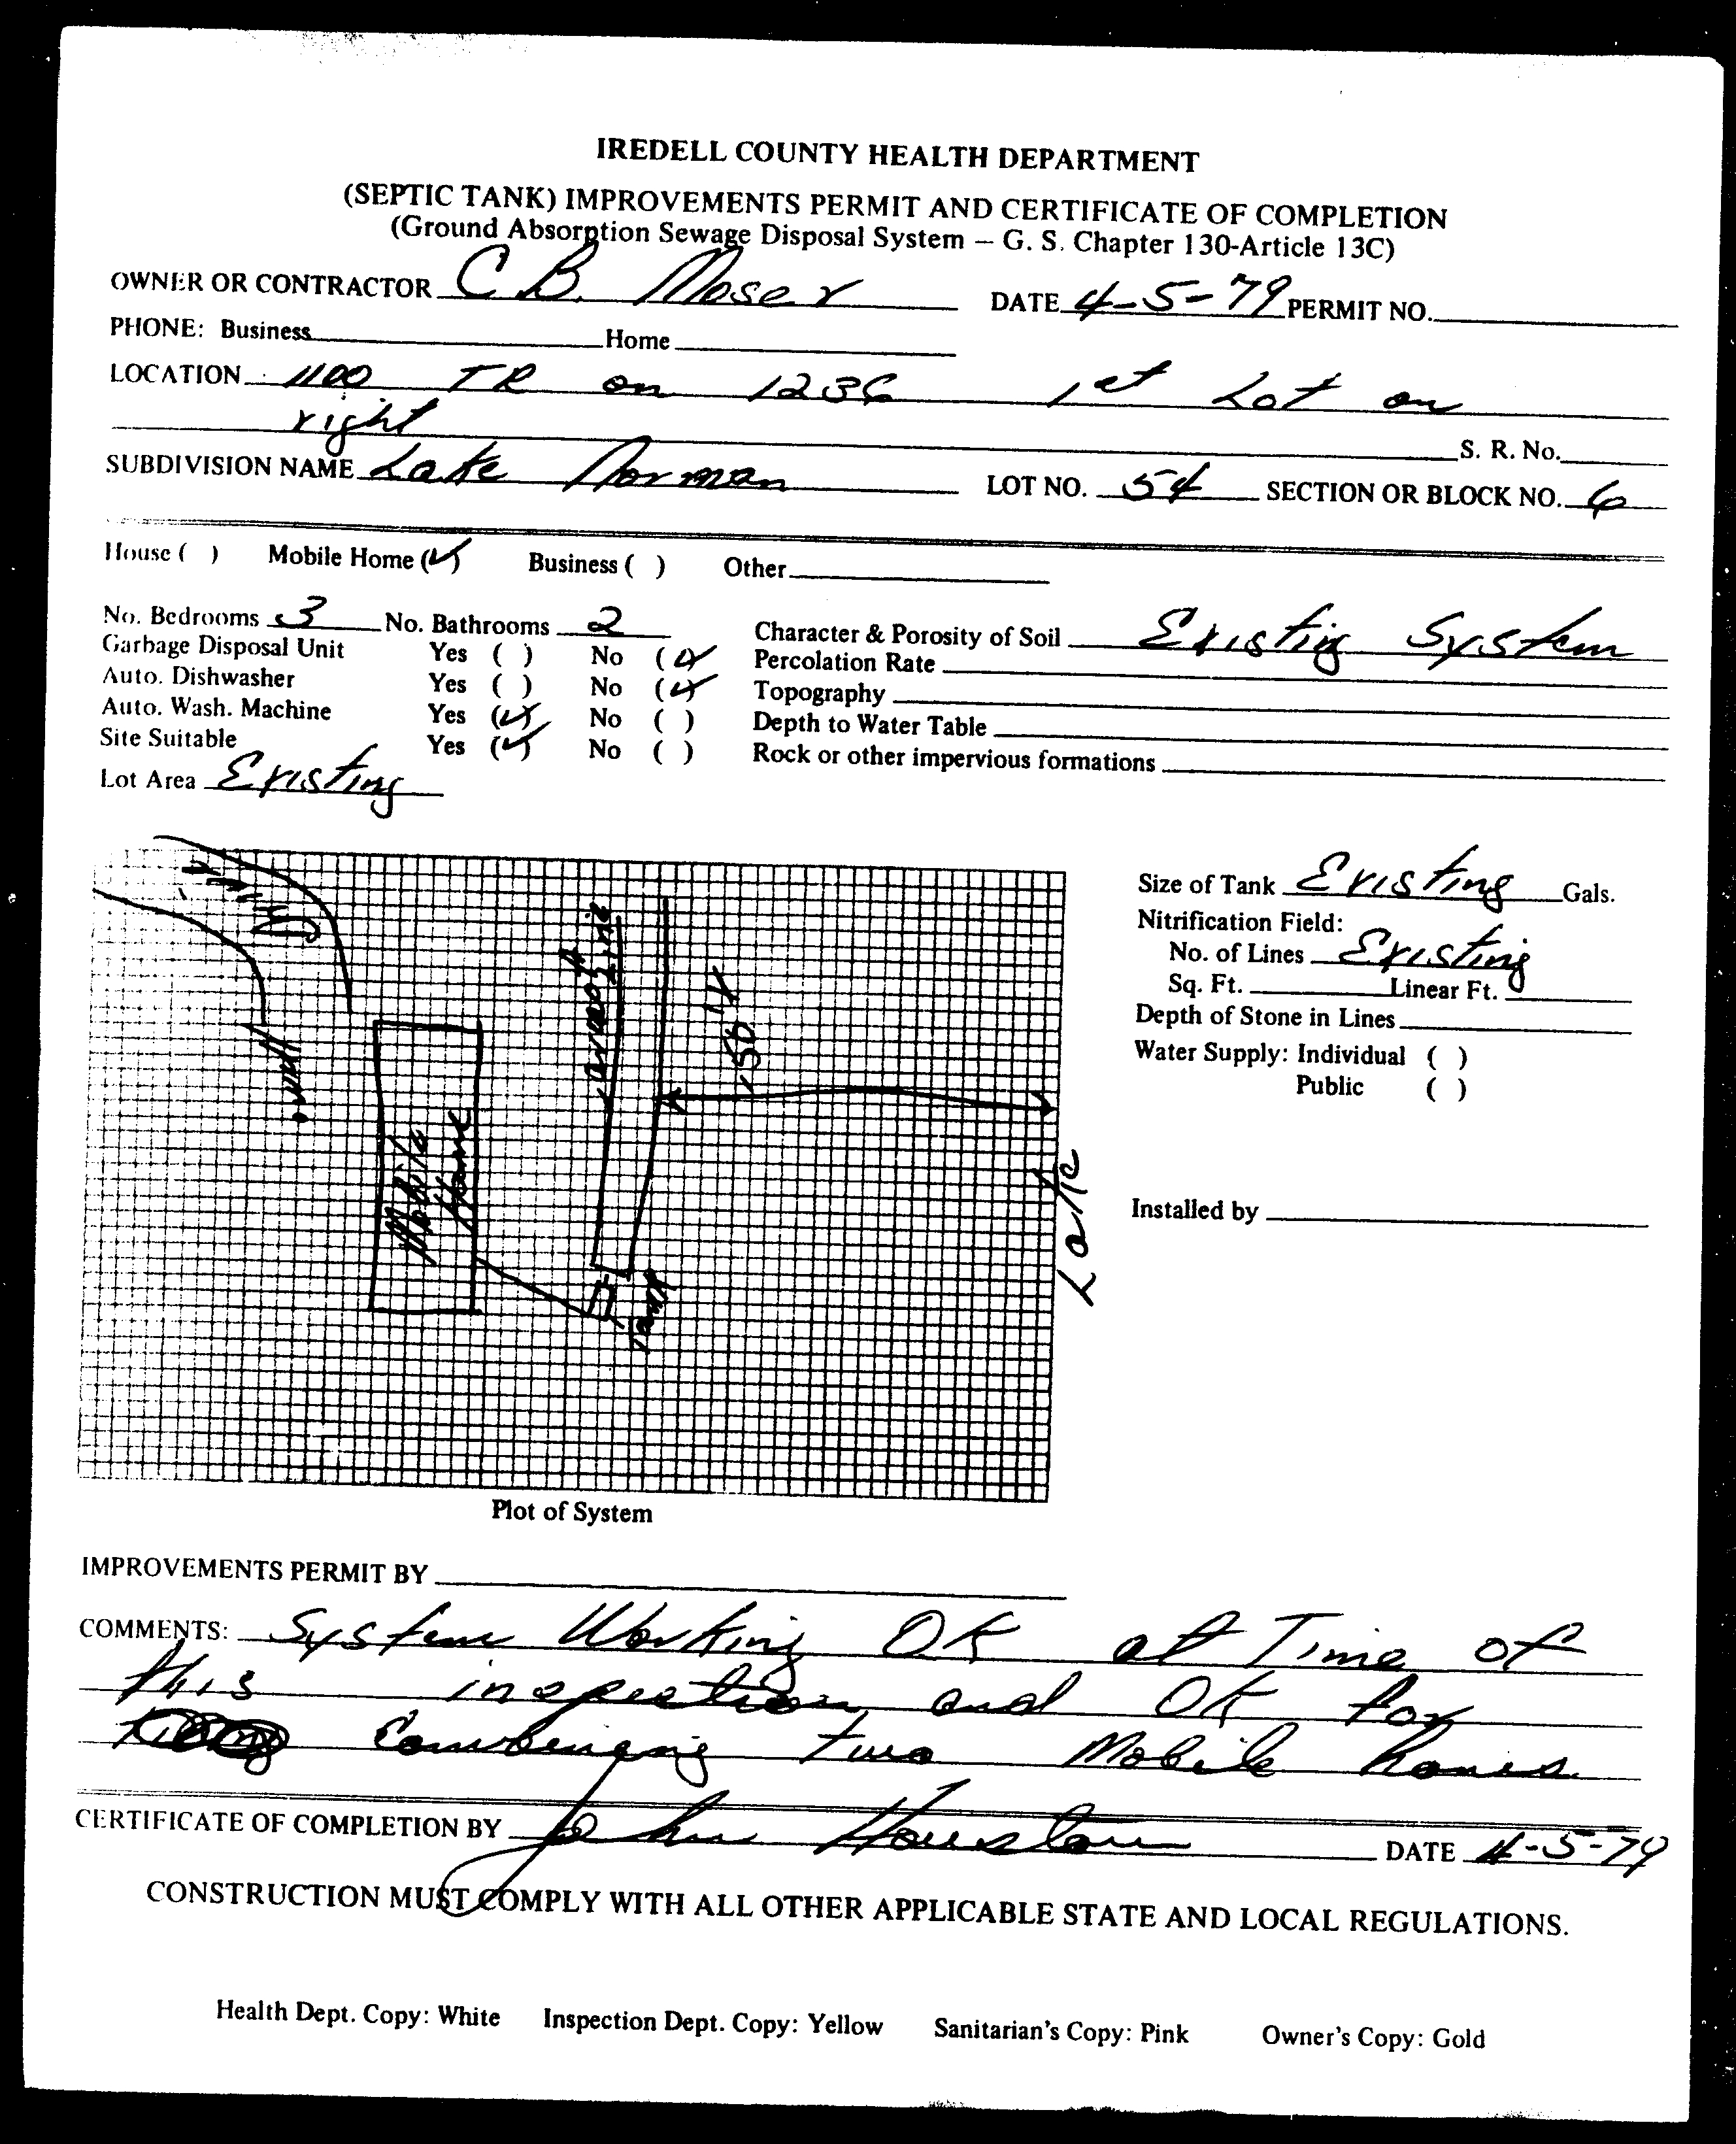 IREDELL COUNTY HEALTH DEPARTMENT
(SEPTIC TANK) IMPROVEMENTS PERMIT AND CERTIFICATE OF COMPLETION
(Ground Absorption Sewage Disposal System – G. S. Chapter 130-Article 13C)
OWNER OR CONTRACTOR C B. Moser DATE 4-5-79 PERMIT NO.
PHONE: Business Home
LOCATION 1100 TR on 1236 1st Lot on
right S. R. No.
SUBDIVISION NAME Lake Norman LOT NO. 54 SECTION OR BLOCK NO. 6
House ( ) Mobile Home (✓) Business ( ) Other
No. Bedrooms 3 No. Bathrooms 2 Character & Porosity of Soil Existing System
Garbage Disposal Unit Yes ( ) No (✓) Percolation Rate
Auto. Dishwasher Yes ( ) No (✓) Topography
Auto. Wash. Machine Yes (✓) No ( ) Depth to Water Table
Site Suitable Yes (✓) No ( ) Rock or other impervious formations
Lot Area Existing
Size of Tank Existing Gals.
Nitrification Field:
No. of Lines Existing
Sq. Ft. Linear Ft.
Depth of Stone in Lines
Water Supply: Individual ( )
Public ( )
Installed by
Mobile
Home
Tank
Lake
Plot of System
IMPROVEMENTS PERMIT BY
COMMENTS: System Working OK at Time of
this inspection and OK for
Combineing two Mobile homes.
CERTIFICATE OF COMPLETION BY John Houston DATE 4-5-79
CONSTRUCTION MUST COMPLY WITH ALL OTHER APPLICABLE STATE AND LOCAL REGULATIONS.
Health Dept. Copy: White Inspection Dept. Copy: Yellow Sanitarian's Copy: Pink Owner's Copy: Gold